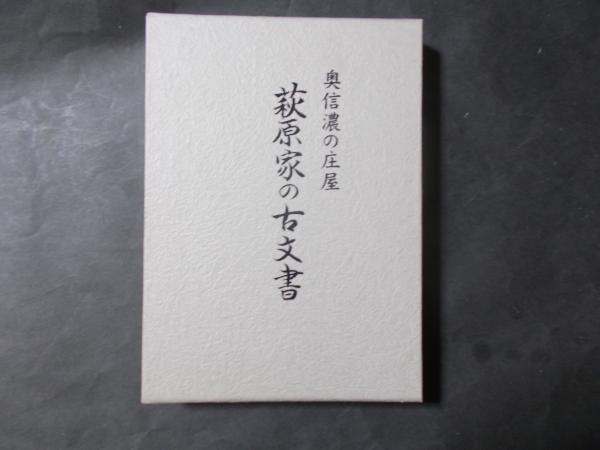 奥信濃の庄屋
萩原家の古文書